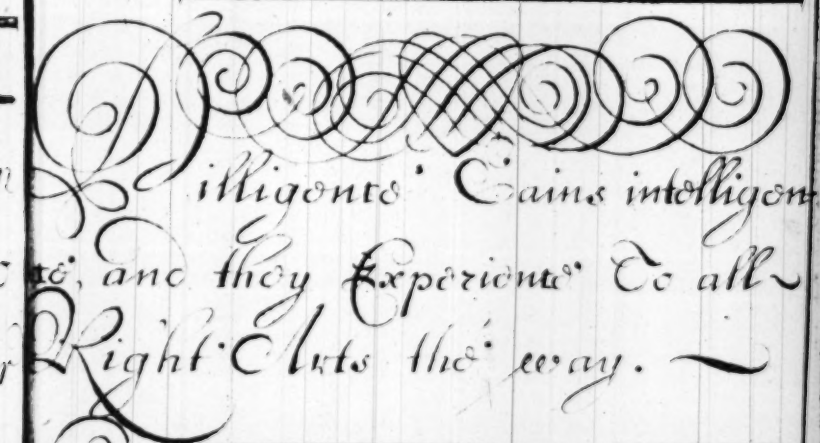 Dilligence Gains intelligen
ce, and they Experience To all
Right Arts the way.